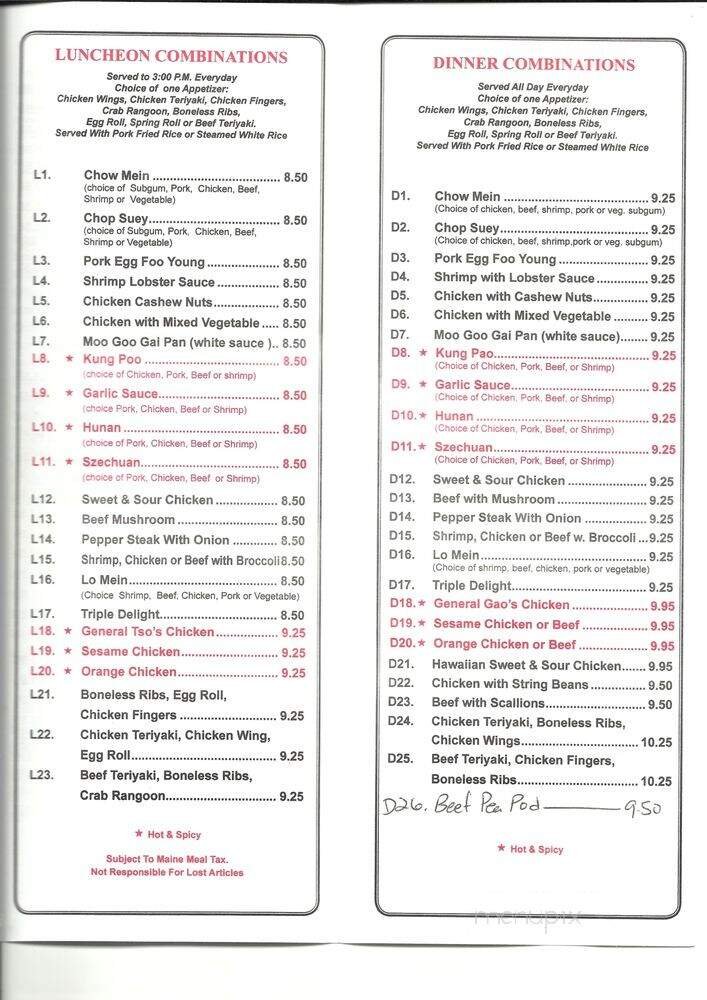 LUNCHEON COMBINATIONS
Served to 3:00 P.M. Everyday
Choice of one Appetizer:
Chicken Wings, Chicken Teriyaki, Chicken Fingers,
Crab Rangoon, Boneless Ribs,
Egg Roll, Spring Roll or Beef Teriyaki.
Served With Pork Fried Rice or Steamed White Rice
L1. Chow Mein ................................ 8.50
(choice of Subgum, Pork, Chicken, Beef,
Shrimp or Vegetable)
L2. Chop Suey................................ 8.50
(choice of Subgum, Pork, Chicken, Beef,
Shrimp or Vegetable)
L3. Pork Egg Foo Young .................. 8.50
L4. Shrimp Lobster Sauce ............... 8.50
L5. Chicken Cashew Nuts................. 8.50
L6. Chicken with Mixed Vegetable ..... 8.50
L7. Moo Goo Gai Pan (white sauce ).. 8.50
L8. ★ Kung Poo ................................. 8.50
(choice of Chicken, Pork, Beef or shrimp)
L9. ★ Garlic Sauce.............................. 8.50
(choice Pork, Chicken, Beef or Shrimp)
L10. ★ Hunan ....................................... 8.50
(choice of Pork, Chicken, Beef or Shrimp)
L11. ★ Szechuan................................... 8.50
(choice of Pork, Chicken, Beef or Shrimp)
L12. Sweet & Sour Chicken ............... 8.50
L13. Beef Mushroom ......................... 8.50
L14. Pepper Steak With Onion ........... 8.50
L15. Shrimp, Chicken or Beef with Broccoli 8.50
L16. Lo Mein..................................... 8.50
(Choice Shrimp, Beef, Chicken, Pork or Vegetable)
L17. Triple Delight............................. 8.50
L18. ★ General Tso's Chicken............... 9.25
L19. ★ Sesame Chicken........................ 9.25
L20. ★ Orange Chicken......................... 9.25
L21. Boneless Ribs, Egg Roll,
Chicken Fingers ........................ 9.25
L22. Chicken Teriyaki, Chicken Wing,
Egg Roll.................................... 9.25
L23. Beef Teriyaki, Boneless Ribs,
Crab Rangoon........................... 9.25
★ Hot & Spicy
Subject To Maine Meal Tax.
Not Responsible For Lost Articles
DINNER COMBINATIONS
Served All Day Everyday
Choice of one Appetizer:
Chicken Wings, Chicken Teriyaki, Chicken Fingers,
Crab Rangoon, Boneless Ribs,
Egg Roll, Spring Roll or Beef Teriyaki.
Served With Pork Fried Rice or Steamed White Rice
D1. Chow Mein .................................... 9.25
(Choice of chicken, beef, shrimp, pork or veg. subgum)
D2. Chop Suey..................................... 9.25
(Choice of chicken, beef, shrimp,pork or veg. subgum)
D3. Pork Egg Foo Young ...................... 9.25
D4. Shrimp with Lobster Sauce ............. 9.25
D5. Chicken with Cashew Nuts.............. 9.25
D6. Chicken with Mixed Vegetable ......... 9.25
D7. Moo Goo Gai Pan (white sauce)....... 9.25
D8. ★ Kung Pao....................................... 9.25
(Choice of Chicken, Pork, Beef, or Shrimp)
D9. ★ Garlic Sauce................................... 9.25
(Choice of Chicken, Pork, Beef, or Shrimp)
D10. ★ Hunan ........................................... 9.25
(Choice of Chicken, Pork, Beef, or Shrimp)
D11. ★ Szechuan....................................... 9.25
(Choice of Chicken, Pork, Beef, or Shrimp)
D12. Sweet & Sour Chicken .................... 9.25
D13. Beef with Mushroom ....................... 9.25
D14. Pepper Steak With Onion ................ 9.25
D15. Shrimp, Chicken or Beef w. Broccoli ...9.25
D16. Lo Mein.......................................... 9.25
(Choice of shrimp, beef, chicken, pork or vegetable)
D17. Triple Delight.................................. 9.25
D18. ★ General Gao's Chicken .................... 9.95
D19. ★ Sesame Chicken or Beef ................. 9.95
D20. ★ Orange Chicken or Beef .................. 9.95
D21. Hawaiian Sweet & Sour Chicken....... 9.95
D22. Chicken with String Beans .............. 9.50
D23. Beef with Scallions......................... 9.50
D24. Chicken Teriyaki, Boneless Ribs,
Chicken Wings.............................. 10.25
D25. Beef Teriyaki, Chicken Fingers,
Boneless Ribs............................... 10.25
D26. Beef Pea Pod 9.50
★ Hot & Spicy
menupix